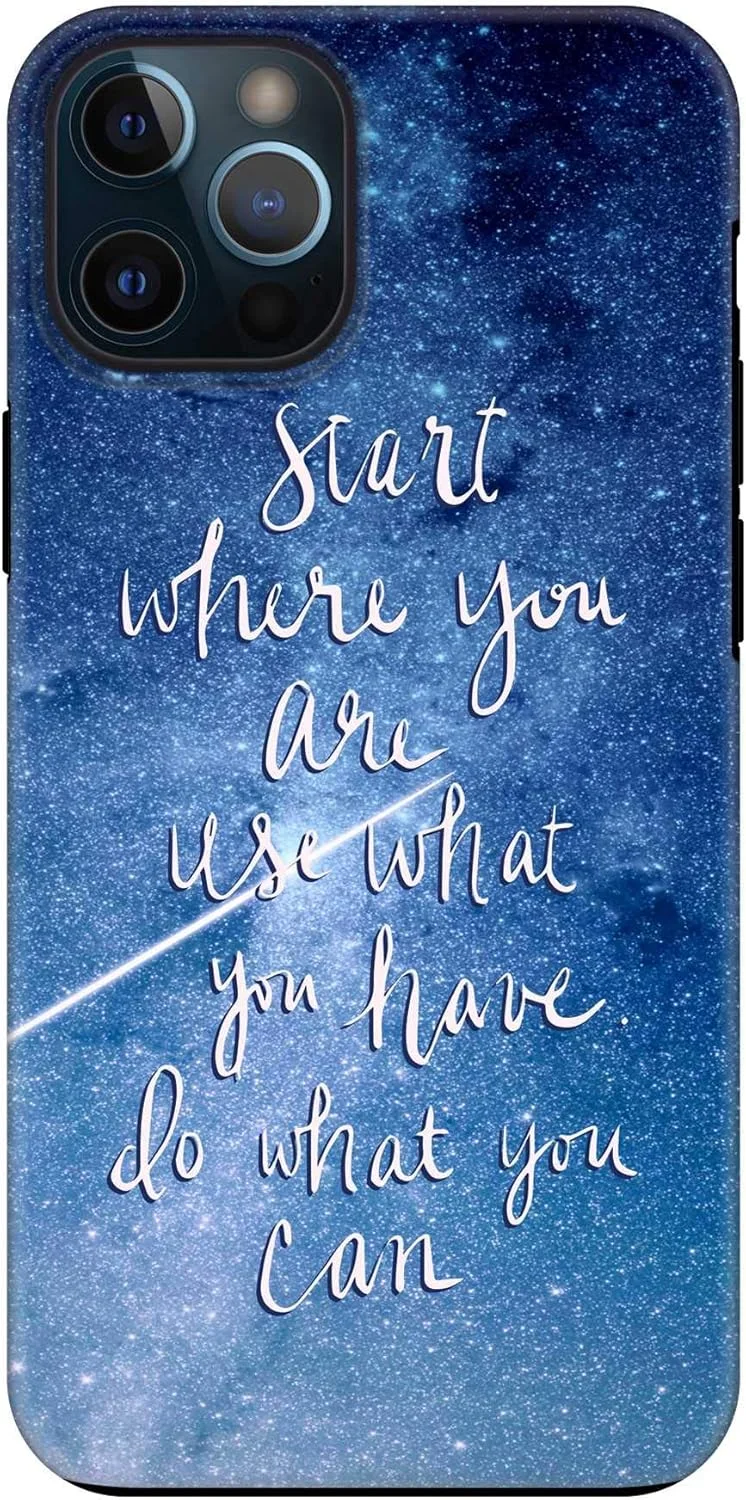 Start
where you
are
use what
you have.
do what you
can